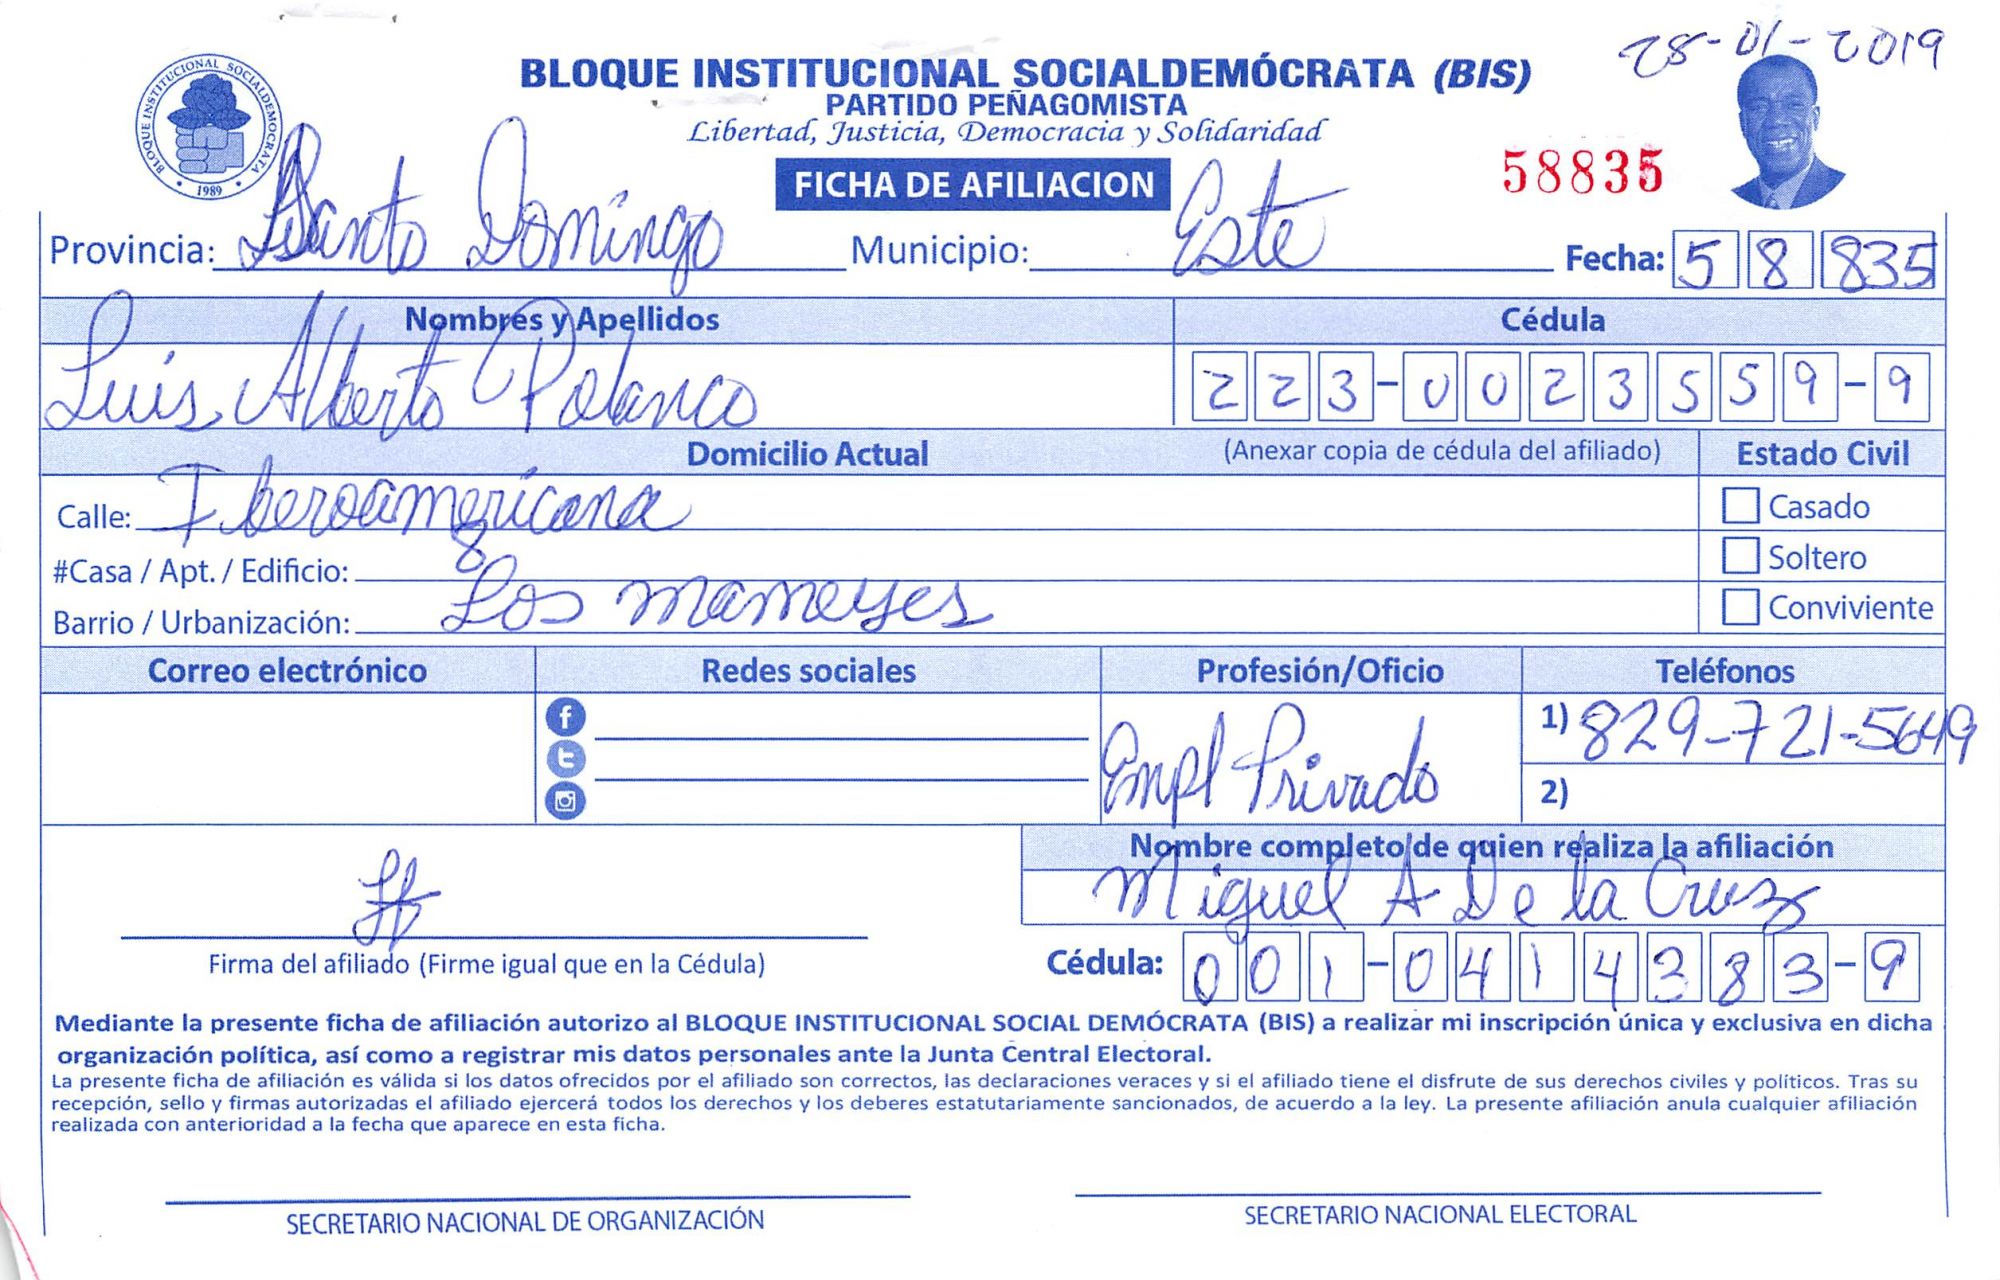 28-01-2019
BLOQUE INSTITUCIONAL SOCIALDEMÓCRATA (BIS)
PARTIDO PEÑAGOMISTA
Libertad, Justicia, Democracia y Solidaridad
BLOQUE INSTITUCIONAL SOCIALDEMOCRATA
1989
FICHA DE AFILIACION
58835
Provincia: Santo Domingo Municipio: Este Fecha: 5 8 835
Nombres y Apellidos Cédula
Luis Alberto Polanco 223-0023559-9
Domicilio Actual (Anexar copia de cédula del afiliado) Estado Civil
Calle: Iberoamericana Casado
#Casa / Apt. / Edificio: 8 Soltero
Barrio / Urbanización: Los mameyes Conviviente
Correo electrónico Redes sociales Profesión/Oficio Teléfonos
Empl Privado 1) 829-721-5649
2)
Nombre completo de quien realiza la afiliación
Miguel A De la Cruz
Firma del afiliado (Firme igual que en la Cédula) Cédula: 001-0414383-9
Mediante la presente ficha de afiliación autorizo al BLOQUE INSTITUCIONAL SOCIAL DEMÓCRATA (BIS) a realizar mi inscripción única y exclusiva en dicha
organización política, así como a registrar mis datos personales ante la Junta Central Electoral.
La presente ficha de afiliación es válida si los datos ofrecidos por el afiliado son correctos, las declaraciones veraces y si el afiliado tiene el disfrute de sus derechos civiles y políticos. Tras su
recepción, sello y firmas autorizadas el afiliado ejercerá todos los derechos y los deberes estatutariamente sancionados, de acuerdo a la ley. La presente afiliación anula cualquier afiliación
realizada con anterioridad a la fecha que aparece en esta ficha.
SECRETARIO NACIONAL DE ORGANIZACIÓN SECRETARIO NACIONAL ELECTORAL